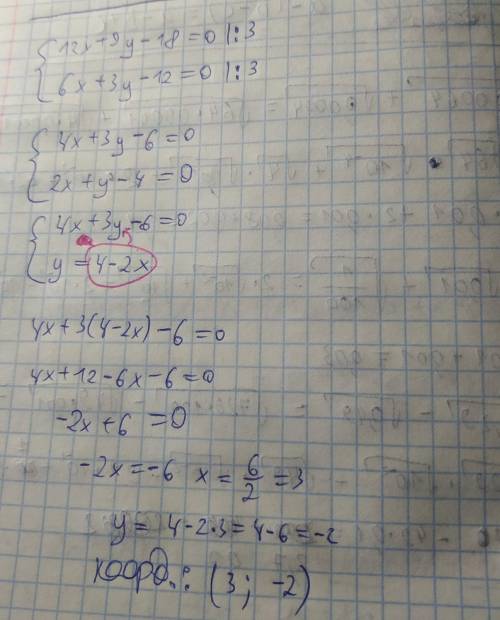 12x+9y-18=0 |:3
6x+3y-12=0 |:3
4x+3y-6=0
2x+y-4=0
4x+3y-6=0
y=4-2x
4x+3(4-2x)-6=0
4x+12-6x-6=0
-2x+6=0
-2x=-6 x=6/2=3
y=4-2·3=4-6=-2
коорд.: (3; -2)